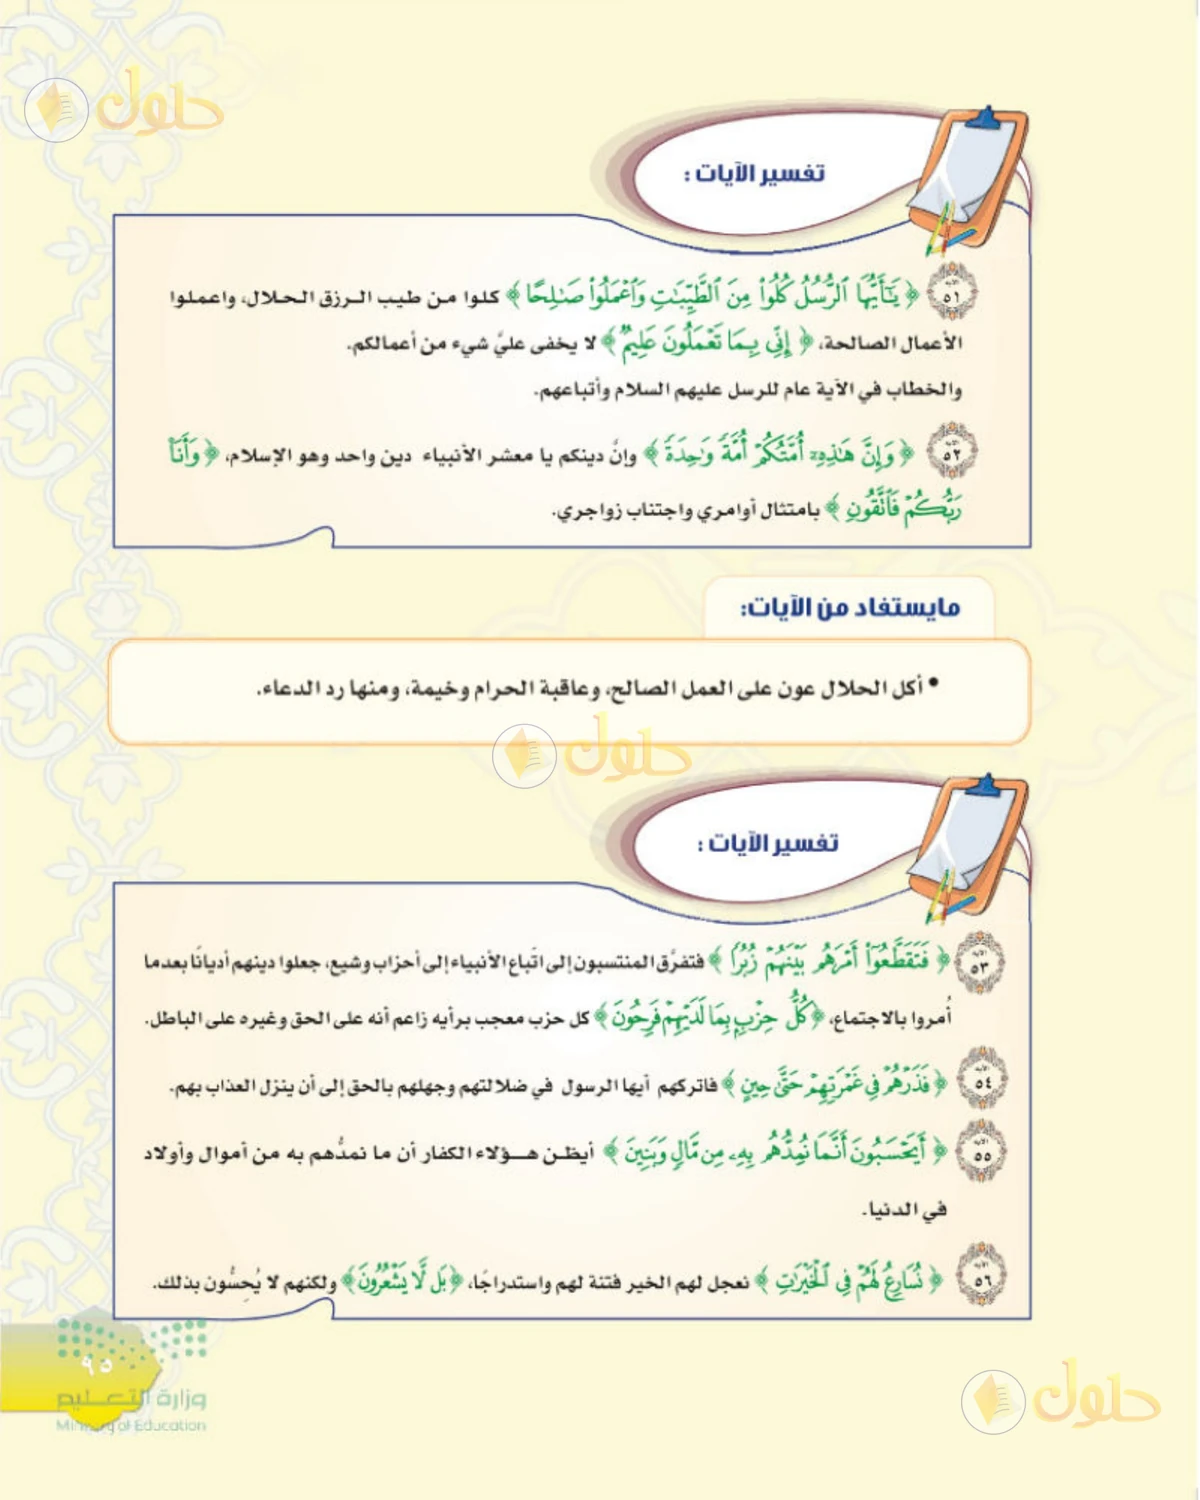 حلول
تفسير الآيات :
الآية ٥١ ﴿ يَٰٓأَيُّهَا ٱلرُّسُلُ كُلُواْ مِنَ ٱلطَّيِّبَٰتِ وَٱعْمَلُواْ صَٰلِحًا ﴾ كلوا من طيب الرزق الحلال، واعملوا
الأعمال الصالحة، ﴿ إِنِّي بِمَا تَعْمَلُونَ عَلِيمٌ ﴾ لا يخفى عليَّ شيء من أعمالكم.
والخطاب في الآية عام للرسل عليهم السلام وأتباعهم.
الآية ٥٢ ﴿ وَإِنَّ هَٰذِهِۦٓ أُمَّتُكُمْ أُمَّةً وَٰحِدَةً ﴾ وإنَّ دينكم يا معشر الأنبياء دين واحد وهو الإسلام، ﴿ وَأَنَا۠
رَبُّكُمْ فَٱتَّقُونِ ﴾ بامتثال أوامري واجتناب زواجري.
مايستفاد من الآيات:
• أكل الحلال عون على العمل الصالح، وعاقبة الحرام وخيمة، ومنها رد الدعاء.
حلول
تفسير الآيات :
الآية ٥٣ ﴿ فَتَقَطَّعُوٓاْ أَمْرَهُم بَيْنَهُمْ زُبُرًا ﴾ فتفرَّق المنتسبون إلى اتّباع الأنبياء إلى أحزاب وشيع، جعلوا دينهم أديانًا بعدما
أُمروا بالاجتماع، ﴿كُلُّ حِزْبٍۭ بِمَا لَدَيْهِمْ فَرِحُونَ ﴾ كل حزب معجب برأيه زاعم أنه على الحق وغيره على الباطل.
الآية ٥٤ ﴿ فَذَرْهُمْ فِي غَمْرَتِهِمْ حَتَّىٰ حِينٍ ﴾ فاتركهم أيها الرسول في ضلالتهم وجهلهم بالحق إلى أن ينزل العذاب بهم.
الآية ٥٥ ﴿ أَيَحْسَبُونَ أَنَّمَا نُمِدُّهُم بِهِۦ مِن مَّالٍ وَبَنِينَ ﴾ أيظن هؤلاء الكفار أن ما نمدُّهم به من أموال وأولاد
في الدنيا.
الآية ٥٦ ﴿ نُسَارِعُ لَهُمْ فِي ٱلْخَيْرَٰتِ ﴾ نعجل لهم الخير فتنة لهم واستدراجًا، ﴿بَل لَّا يَشْعُرُونَ﴾ ولكنهم لا يُحِسُّون بذلك.
٩٥
وزارة التعليم
Ministry of Education
حلول